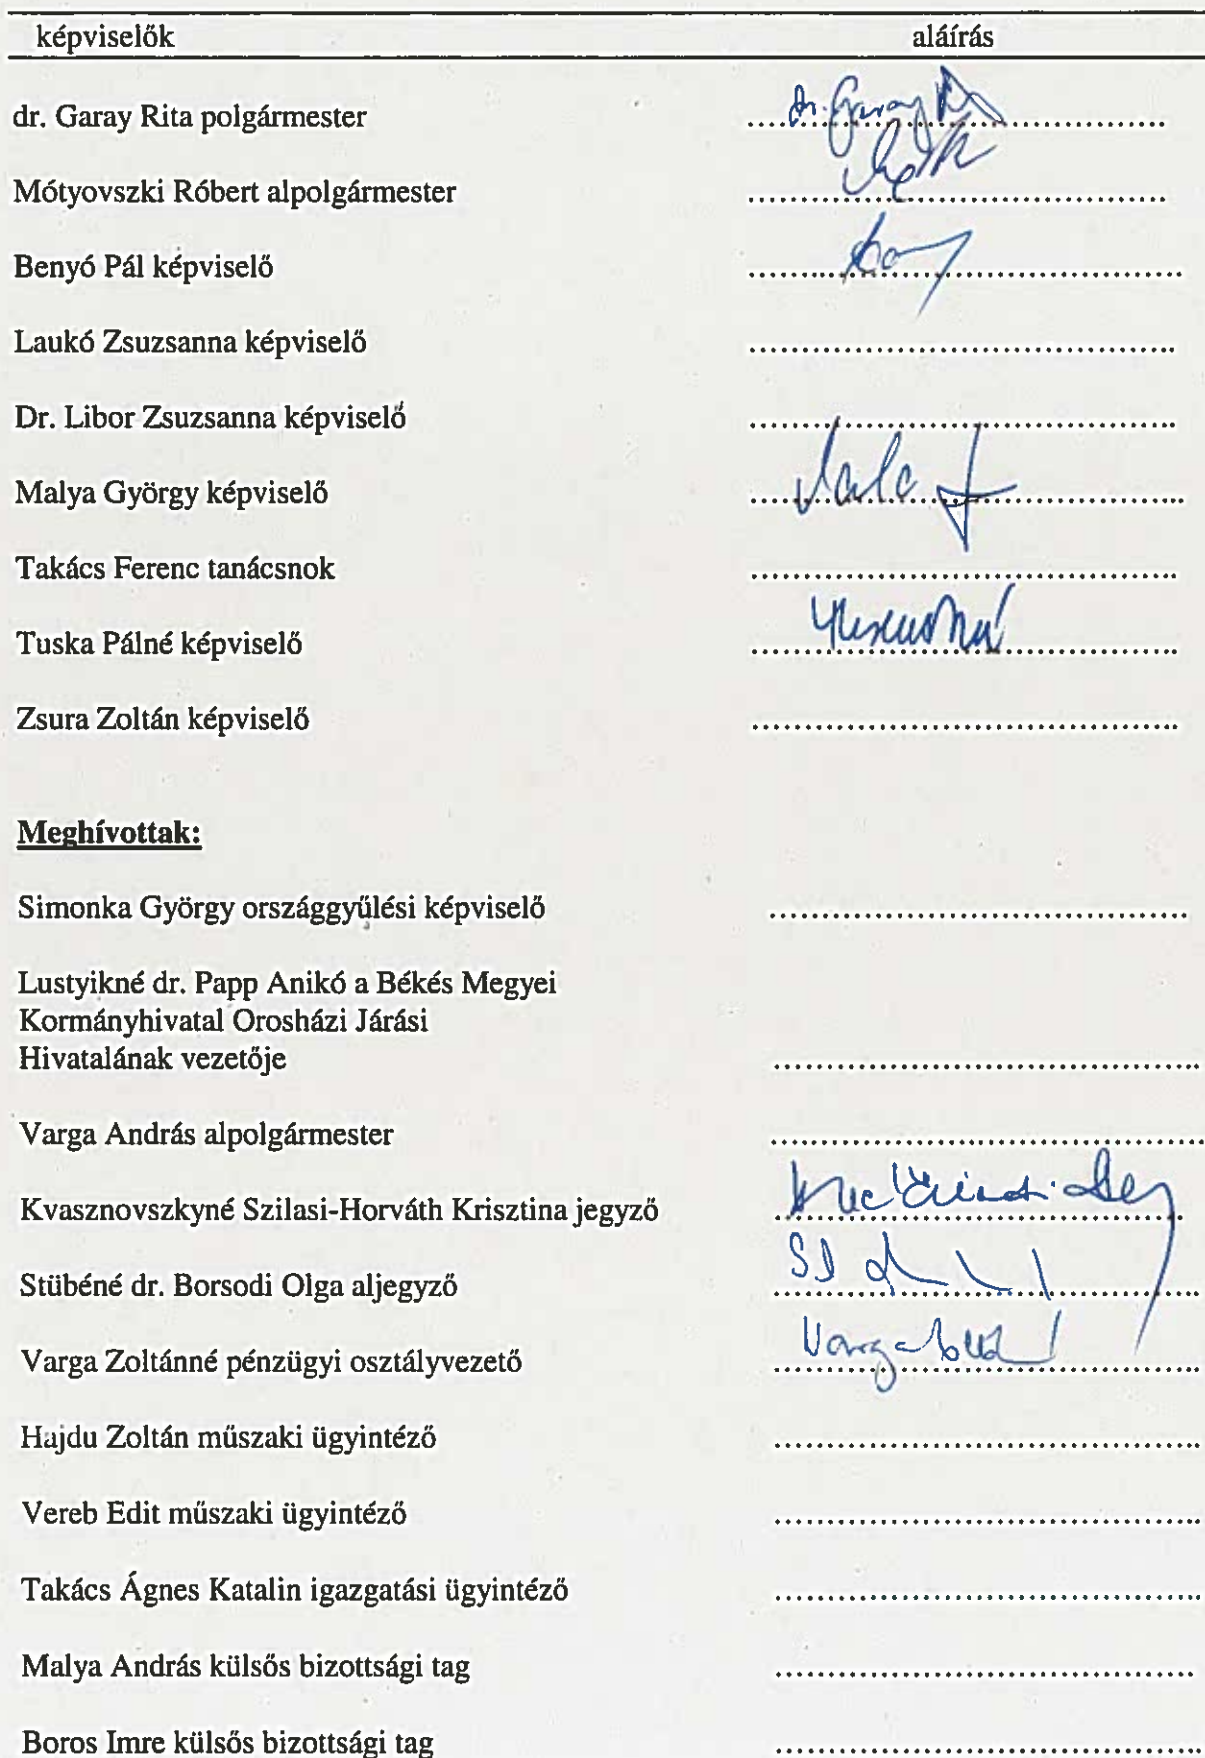 képviselők aláírás
dr. Garay Rita polgármester dr. Garay
Mótyovszki Róbert alpolgármester
Benyó Pál képviselő
Laukó Zsuzsanna képviselő
Dr. Libor Zsuzsanna képviselő
Malya György képviselő
Takács Ferenc tanácsnok
Tuska Pálné képviselő
Zsura Zoltán képviselő
Meghívottak:
Simonka György országgyűlési képviselő
Lustyikné dr. Papp Anikó a Békés Megyei
Kormányhivatal Orosházi Járási
Hivatalának vezetője
Varga András alpolgármester
Kvasznovszkyné Szilasi-Horváth Krisztina jegyző
Stübéné dr. Borsodi Olga aljegyző
Varga Zoltánné pénzügyi osztályvezető Varga
Hajdu Zoltán műszaki ügyintéző
Vereb Edit műszaki ügyintéző
Takács Ágnes Katalin igazgatási ügyintéző
Malya András külsős bizottsági tag
Boros Imre külsős bizottsági tag